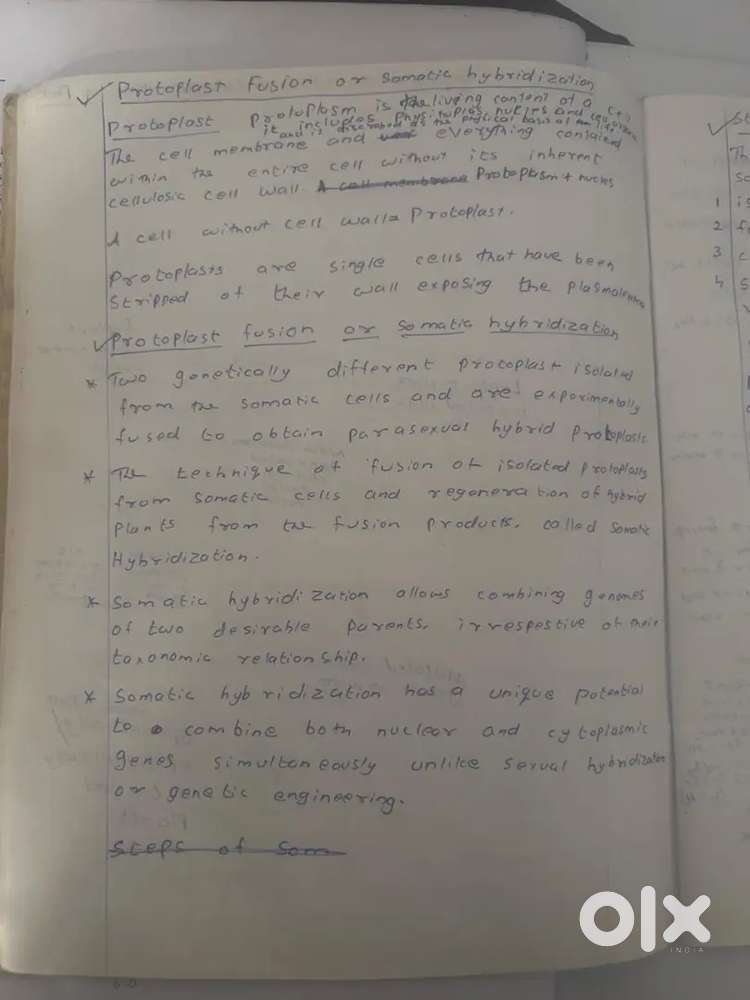 Protoplast Fusion or Somatic hybridization
Protoplasm is the living content of a cell
it includes nucleus and
and is described as the physical basis of life
Protoplast
The cell membrane and everything contained
within the entire cell without its inherent
cellulosic cell wall. A cell membrane Protoplasm + nucles
A cell without cell wall = Protoplast.
Protoplasts are single cells that have been
stripped of their wall exposing the
Protoplast fusion or Somatic hybridization
* Two genetically different protoplast isolated
from the somatic cells and are exporimentally
fused to obtain parasexual hybrid protoplasts
* The technique of fusion of isolated protoplasts
from somatic cells and regeneration of hybrid
plants from the fusion products. called somatic
Hybridization.
* Somatic hybridization allows combining genomes
of two desirable parents. irrespestive of their
taxonomic relationship.
* Somatic hybridization has a unique potential
to combine both nuclear and cytoplasmic
genes simultoneously unlike sexual hybridization
or genetic engineering.
Steps of Som
St
Th
so
1 is
2 f
3 c
4 s
olx
INDIA